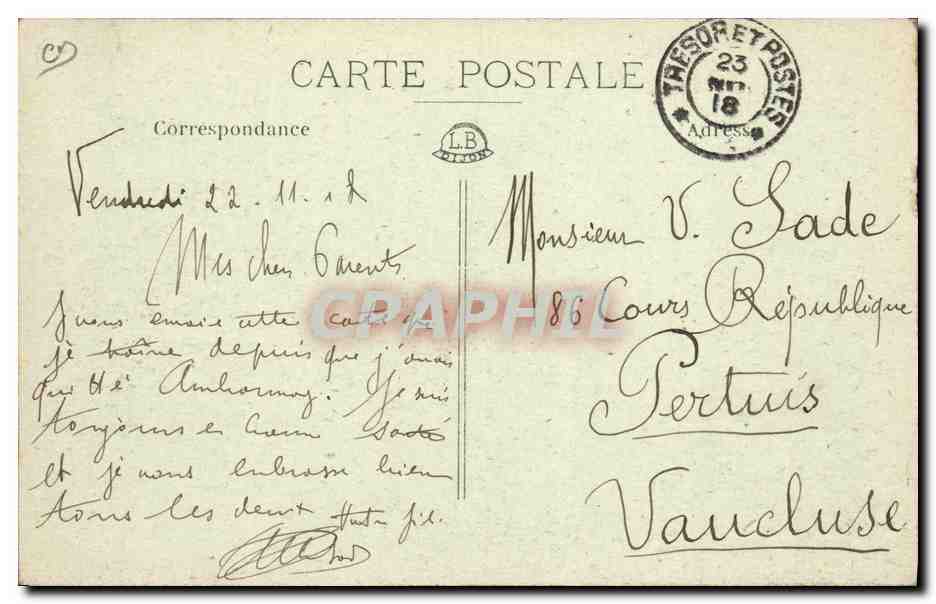 CARTE POSTALE
TRESOR ET POSTES
23
18
Correspondance
L.B
DIJON
Adress
Vendredi 22.11.18
Mes chers Parents
Je vous envoie cette carte que
je traîne depuis que j'avais
quitté
Je suis
toujours en bonne santé
et je vous embrasse bien
tous les deux Votre fils
Monsieur V. Sade
86 Cours République
Pertuis
Vaucluse
CPAPHIL